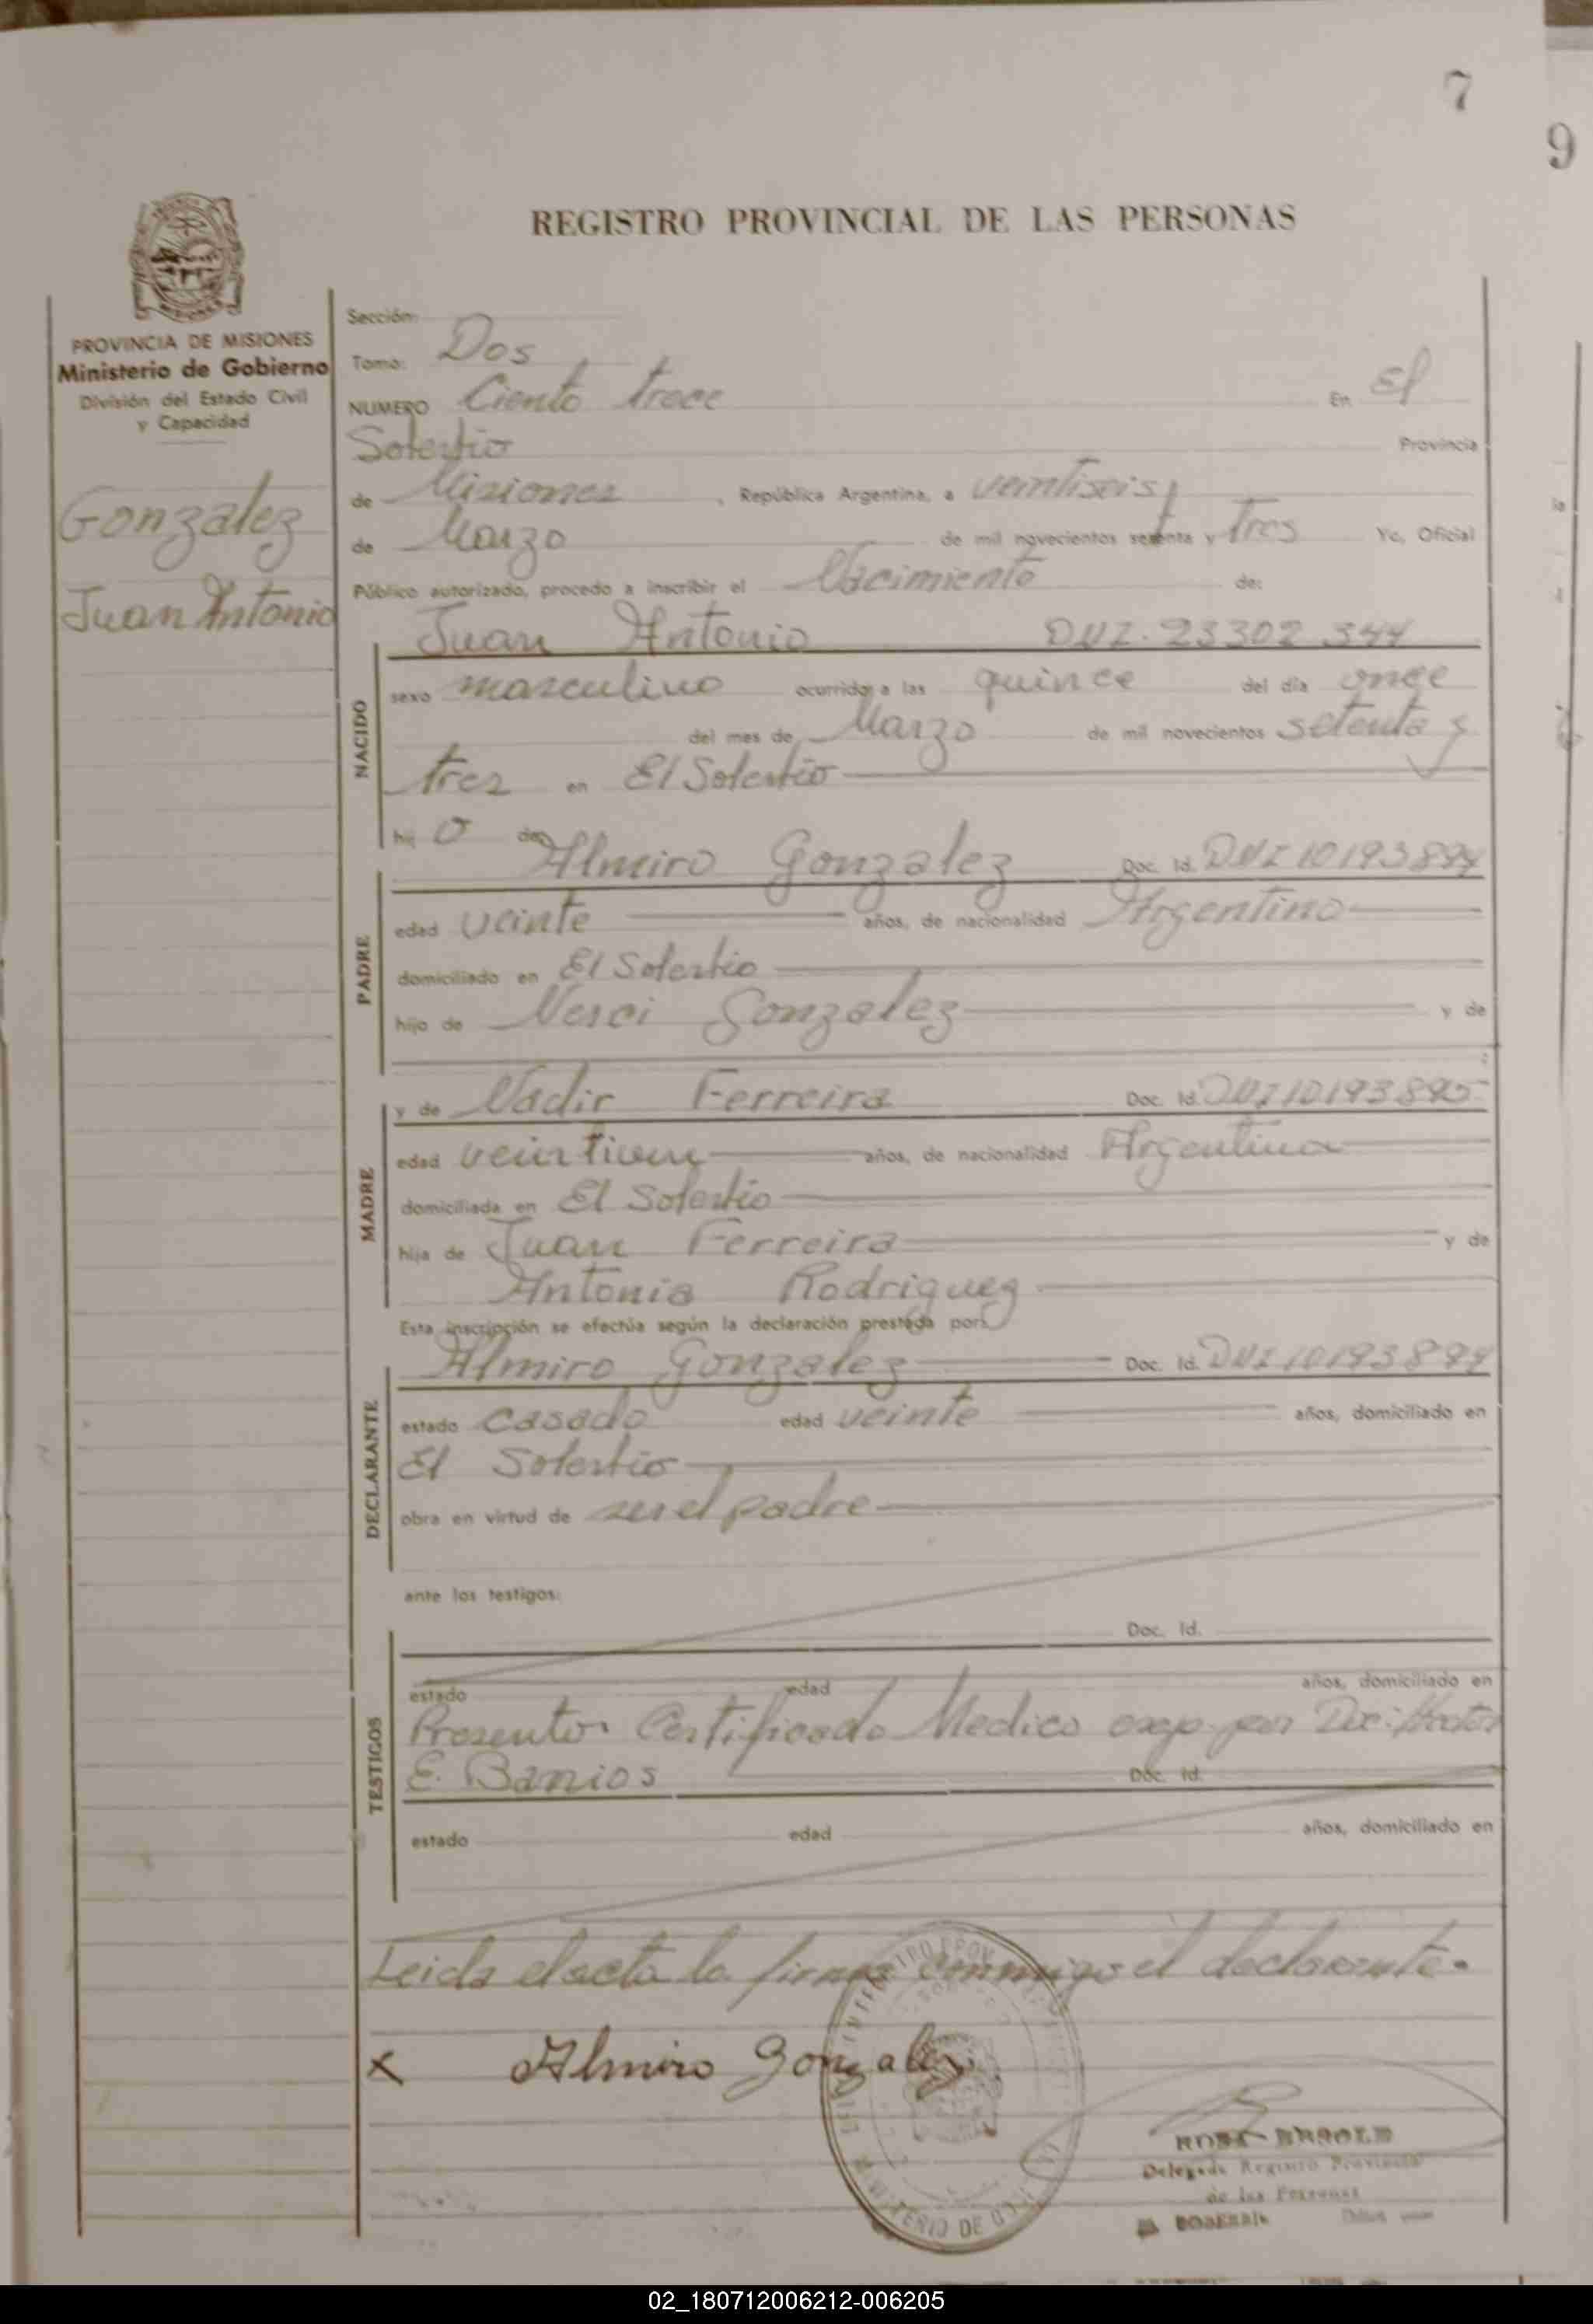 7
9
REGISTRO PROVINCIAL DE LAS PERSONAS
PROVINCIA DE MISIONES
Ministerio de Gobierno
División del Estado Civil
y Capacidad
Gonzalez
Juan Antonio
Sección:
Tomo: Dos
NUMERO Ciento trece En El
Soberbio Provincia
de Misiones, República Argentina, a veintiseis
de Marzo de mil novecientos setenta y tres Yo, Oficial
Público autorizado, procedo a inscribir el Nacimiento de:
Juan Antonio DNI. 23302 344
NACIDO
sexo masculino ocurrido a las quince del día once
del mes de Marzo de mil novecientos setenta y
tres en El Soberbio
hij o de Almiro Gonzalez Doc. Id. DNI 10193894
PADRE
edad veinte años, de nacionalidad Argentino
domiciliado en El Soberbio
hijo de Nerci Gonzalez y de
y de Nadir Ferreira Doc. Id. DNI 10193895
MADRE
edad años, de nacionalidad Argentina
domiciliada en El Soberbio
hija de Juan Ferreira y de
Antonia Rodriguez
Esta inscripción se efectúa según la declaración prestada por:
Almiro Gonzalez Doc. Id. DNI 10193894
DECLARANTE
estado casado edad veinte años, domiciliado en
El Soberbio
obra en virtud de ser el padre
ante los testigos:
Doc. Id.
TESTIGOS
estado edad años, domiciliado en
Presento Certificado Medico exp. por Doc: Hector
E. Barrios Doc. Id.
estado edad años, domiciliado en
Leida el acta la firma conmigo el declarante.
x Almiro Gonzalez
MINISTERIO DE
Delegada Registro Provincial
de las Personas
02_180712006212-006205